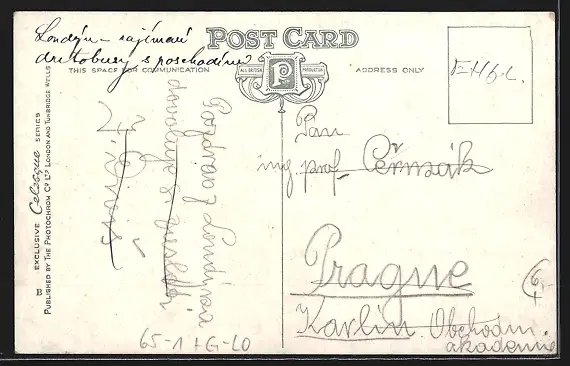 Londýn – zajímavé
autobusy s poschodím
POST CARD
THIS SPACE FOR COMMUNICATION
ALL BRITISH
PRODUCTION
P
ADDRESS ONLY
EXCLUSIVE Celesque SERIES
PUBLISHED BY THE PHOTOCHROM CO LTD LONDON AND TUNBRIDGE WELLS
B
Pozdrav z Londýna
dovoluje si
Pan
ing prof. Čermák
Prague
Karlín Obchodní
akademie
65-1+G-LO